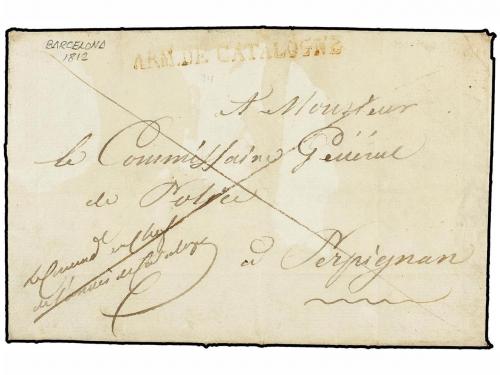 BARCELONA
1812
ARM. DE CATALOGNE
A Monsieur
le Commissaire Général
de Police
à Perpignan
en Chef
de l'armée de Catalogne